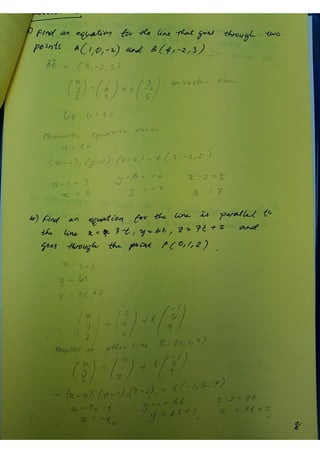 Find an equation for the line that goes through two
points A(1,0,-2) and B(4,-2,3).
AB = (3,-2,5)
(x y z) = (1 0 2) + t(3 -2 5) vector form
Parametric equation
(x-1), (y-0), (z-2) = t(3,-2,5)
x-1=3 y-0=-2 z-2=5
x=4 y=-2 z=7
b) Find an equation for the line is parallel to
the line x= 3-t, y=6t, z=7t+2 and
goes through the point P(0,1,2).
x=3-t
y=6t
z=7t+2
(x y z) = (3 0 2) + t(-1 6 7)
Parallel to other line P=(0,1,2)
(x y z) = (0 1 2) + t(-1 6 7)
=(x-0),(y-1),(z-2), = t(-1,6,7)
x-0=-t y-1=6t z-2=7t
x=-t, y=6t+1, z=7t+2
8